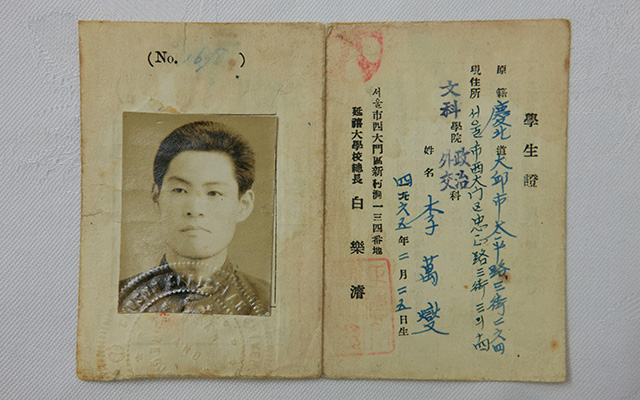 (No. 1698)
學生證
原籍 慶北道大邱市太平路三街二六四
現住所 서울市西大門区忠正路三街三의
文科學院政治外交科
姓名 李萬燮
四二六五年二月二五日生
서울市西大門區新村洞一三四番地
延禧大學校總長 白樂濬